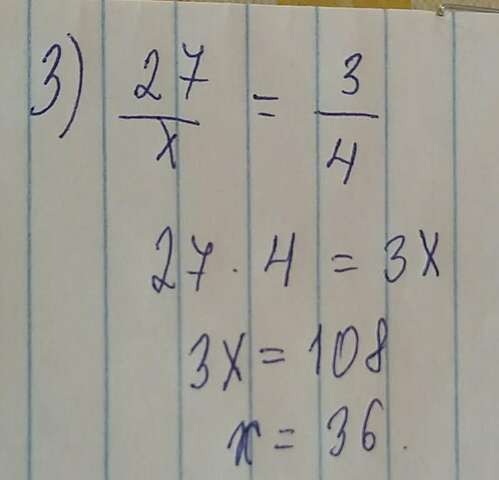 3) 27/x = 3/4
27 · 4 = 3x
3x = 108
x = 36.